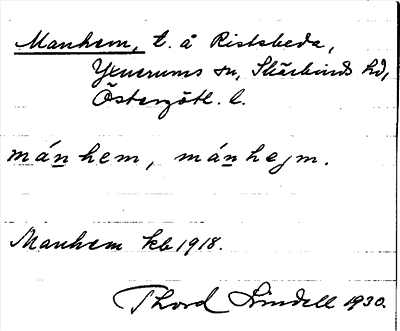 Manhem, t. å Ristebeda,
Yxnerums sn, Skärkinds hd,
Östergötl. l.
mánhem, mánhejm.
Manhem kb 1918.
Thord Lindell 1930.